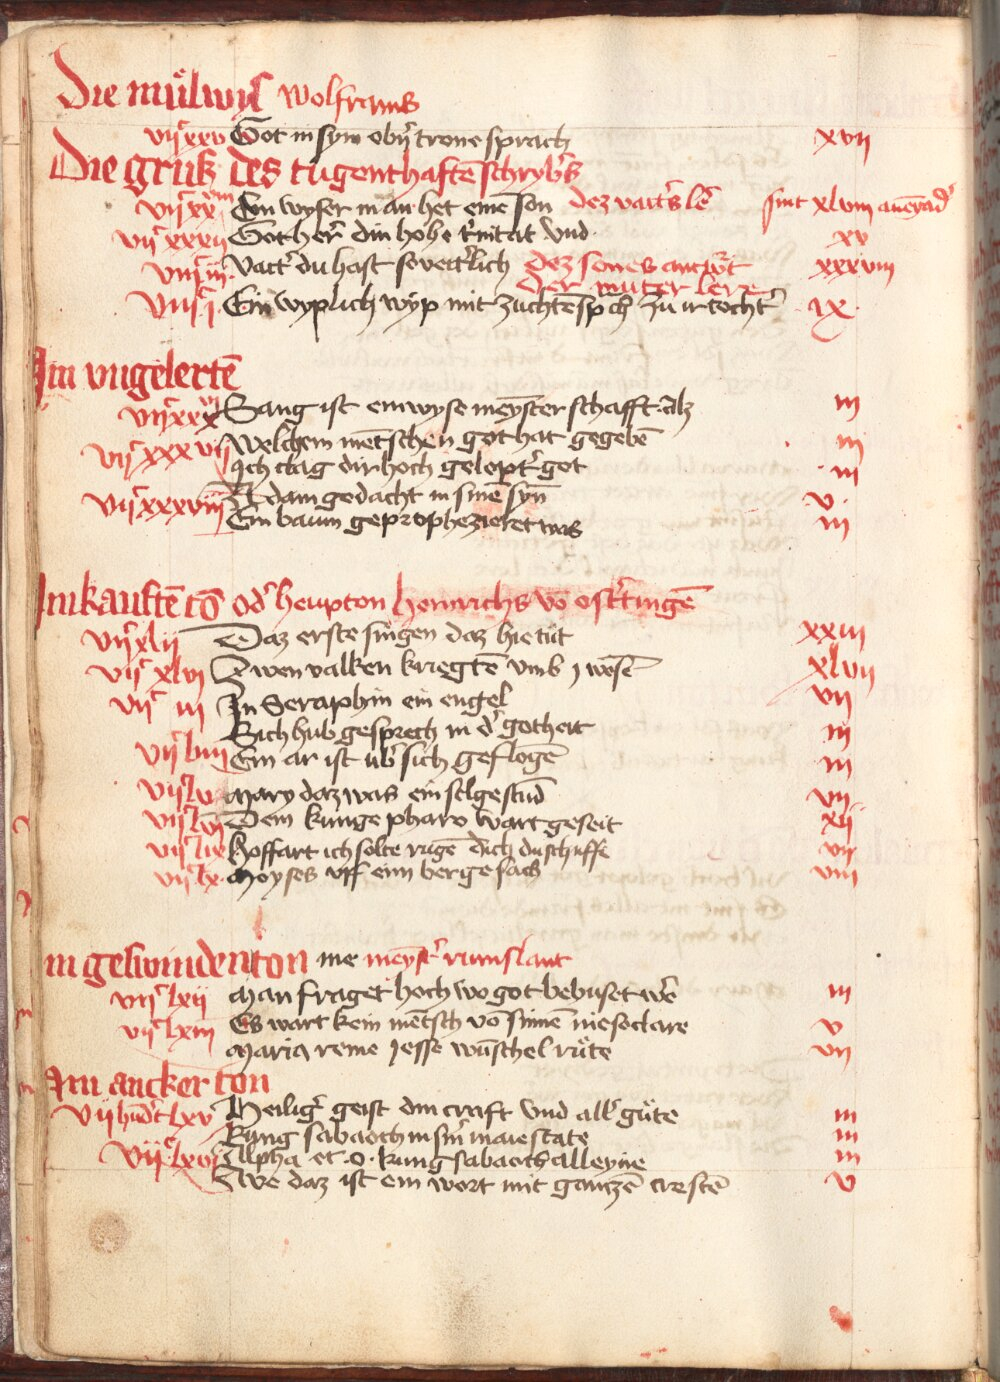 Die mu̎lwis Wolframs
vijͨ xxv Got in sym obn̄ trone sprach xvij
Die gruß des tugenthafftē schrybˢs
vijͨ xx Ein wyser man het einē son dez vattˢs lē sint xlviij
vijͨ xxxij Got herˢ din hohe tˢnitat vnd xv
viijͨ iij Vattˢ du hast so vettˢlich dez sones antwˢt xxxviij
der muter lere
viijͨ j Ein wyplich wyp mit zuchtē spͣch zu ir tochtˢ ix
Im vngelertē
vijͨ xxx Sang ist ein wyse meyſterschafft iij
vijͨ xxxvij Welchem mētschen got hat gegebē iij
Ich clag dir hoch geloptˢ got iij
vijͨ xxxviij Adam gedacht in sinē syn̄ v
Ein baum geprophezieret was iij
Im kauftē tō odˢ heupton heinrichs vō oftˢtingē
vijͨ xlij Daz erste singen daz hie tůt xxiij
vijͨ xlvj Zwen valken kriegtē vmb j wesē xlvij
vijͨ iij In Seraphin ein engel vij
Sich hub gesprech in dˢ gotheit iij
vijͨ liiij Ein ar ist ubˢ sich geflogē iij
vijͨ lv Mary daz was ein selge stūd vij
vijͨ lvj Dem kunge pharo wart geseit xij
vijͨ lix Hoffart ich solte rugē dich du schuffe vij
vijͨ lx Moyses vff einn berge sach viij
In geswinden ton me meyſtˢ rumslant
vijͨ lxij Man fraget hoch wo got behuset wˢe iij
vijͨ lxiij Es wart kein mētsch vō sinnē nie so clare v
Maria reine Jesse wūschel růte vij
Im ancker ton
vij hūdˢt lxv Heiligˢ geist din craft vnd allˢ gůte iij
Kung sabaoth in sinˢ maiestate iij
vijͨ lxvj Alpha et .o. kung sabaoth alleyne iij
Awe daz ist ein wort mit gantzē crestē v